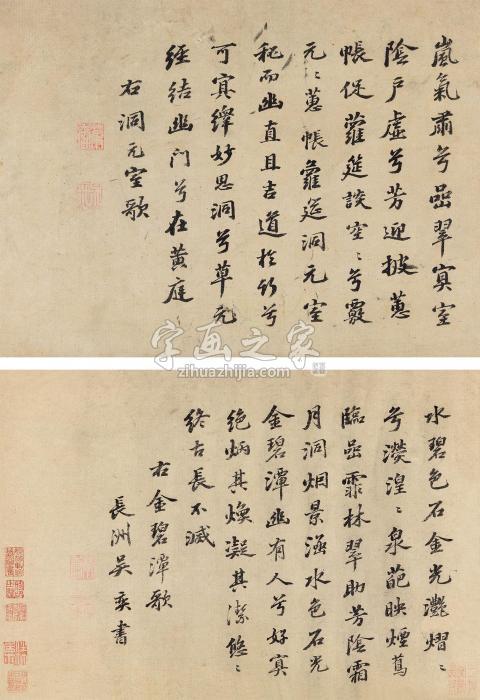 嵐氣肅兮嵒翠冥室
陰戶虛兮芳迎披蕙
帳促蘿筵談空〻兮覈
元〻蕙帳蘿筵洞元室
秘而幽直且吉道於兮
可冥繹妙思洞兮草元
經結幽門兮在黃庭
右洞元室歌
字画之家
zihuazhijia.com
水碧色石金光灔熠〻
兮瀠湟〻泉葩映煙蔦
臨嵒霏林翠助芳陰霜
月洞烟景涵水色石光
金碧潭幽有人兮好冥
絕炳其煥凝其潔悠〻
終古長不滅
右金碧潭歌
長洲吳奕書